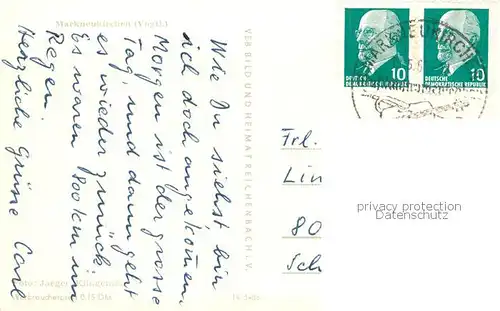 Markneukirchen (Vogtl.)
Wie Du siehst bin
ich doch angekommen.
Morgen ist der grosse
Tag und dann geht
es wieder zurück.
Es waren 800 km im
Regen.
Herzliche Grüsse Carl
Foto: Jaeger, Klingenthal
Verbraucherpreis 0,15 DM
VEB BILD UND HEIMAT REICHENBACH I. V.
10
DEUTSCHE
DEMOKRATISCHE REPUBLIK
10
DEUTSCHE
DEMOKRATISCHE REPUBLIK
MARKNEUKIRCHEN
Frl.
Lin
80
Sch
privacy protection
Datenschutz